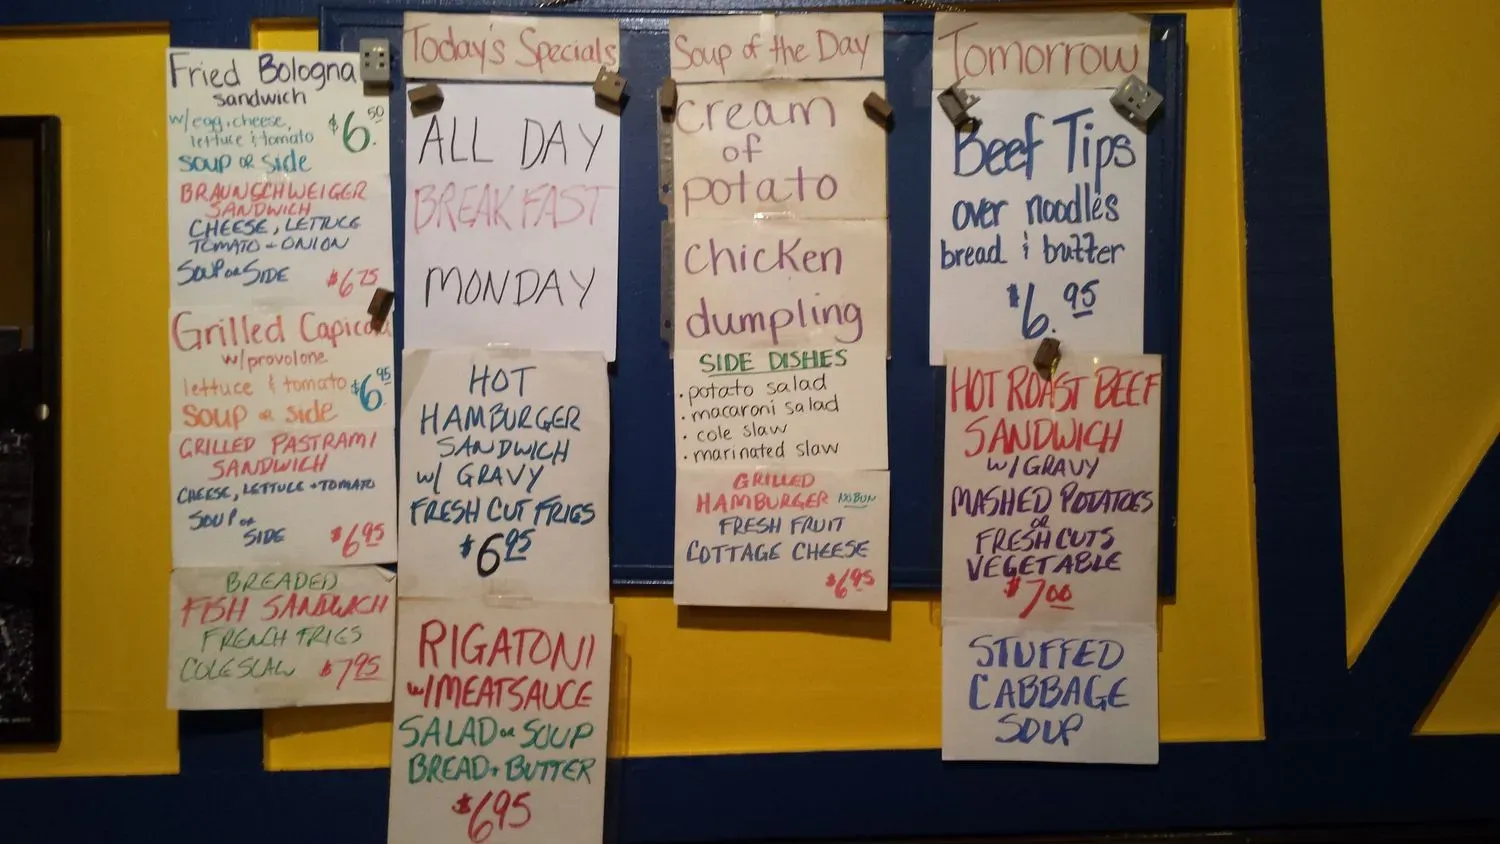 Fried Bologna
sandwich
w/egg, cheese,
lettuce & tomato
$6.50
soup or side
BRAUNSCHWEIGER
SANDWICH
CHEESE, LETTUCE
TOMATO + ONION
SOUP or SIDE
$6.75
Grilled Capicola
w/provolone
lettuce & tomato
$6.95
soup or side
GRILLED PASTRAMI
SANDWICH
CHEESE, LETTUCE + TOMATO
SOUP or
SIDE
$6.95
BREADED
FISH SANDWICH
FRENCH FRIES
COLESLAW $7.95
Today's Specials
ALL DAY
BREAKFAST
MONDAY
HOT
HAMBURGER
SANDWICH
w/ GRAVY
FRESH CUT FRIES
$6.95
RIGATONI
w/MEATSAUCE
SALAD or SOUP
BREAD + BUTTER
$6.95
Soup of the Day
cream
of
potato
chicken
dumpling
SIDE DISHES
• potato salad
• macaroni salad
• cole slaw
• marinated slaw
GRILLED
HAMBURGER NO BUN
FRESH FRUIT
COTTAGE CHEESE
$6.95
Tomorrow
Beef Tips
over noodles
bread & butter
$6.95
HOT ROAST BEEF
SANDWICH
W/GRAVY
MASHED POTATOES
OR
FRESH CUTS
VEGETABLE
$7.00
STUFFED
CABBAGE
SOUP